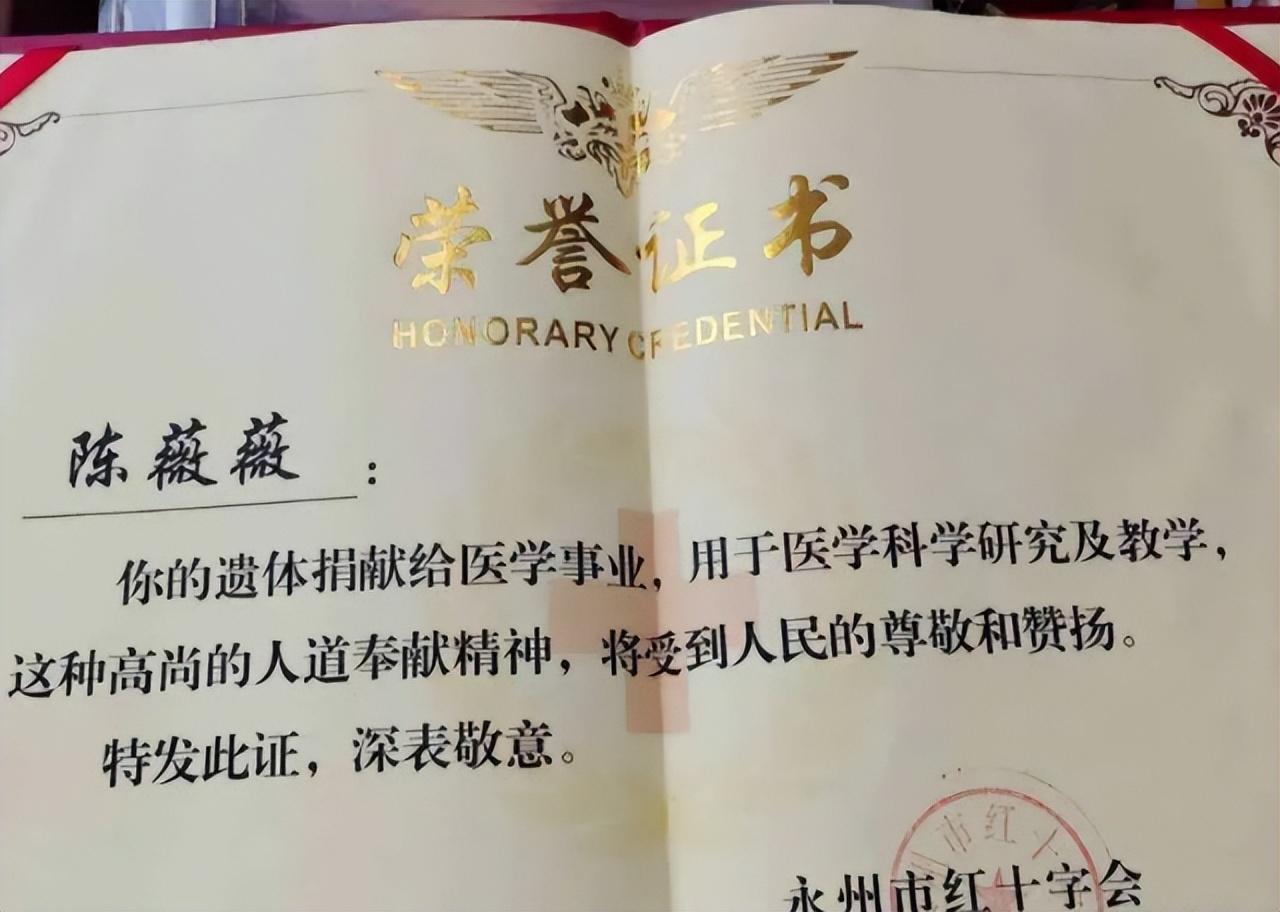 荣誉证书
HONORARY CREDENTIAL
陈薇薇：
你的遗体捐献给医学事业，用于医学科学研究及教学，
这种高尚的人道奉献精神，将受到人民的尊敬和赞扬。
特发此证，深表敬意。
州市红十
永州市红十字会